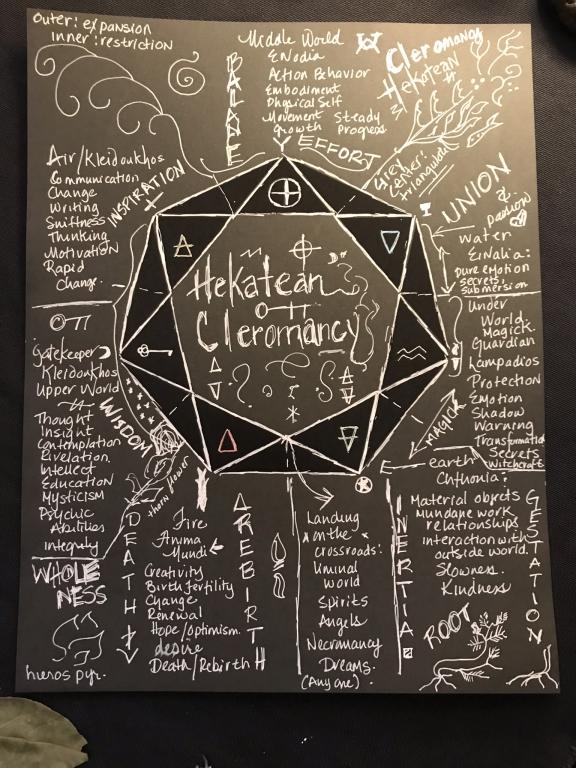 Outer: expansion
inner: restriction
BALANCE
Middle World
ENodia
Action Behavior
Embodiment
Physical Self
Movement Steady
Growth Progress
EFFORT
Cleromancy
Hekatean
Grey
Center:
triangulate
UNION
&
passion
Water
EiNalia:
pure emotion
secrets,
submersion
Air/Kleidoukhos
Communication
Change
Writing
Swiftness
Thinking
Motivation
Rapid
Change.
INSPIRATION
Hekatean
Cleromancy
Gatekeeper
Kleidoukhos
Upper World
Thought
Insight
Contemplation
Revelation
Intellect
Education
Mysticism
Psychic
Abilities
integrity
WISDOM
thorn flower
Under
World.
Magick.
Guardian
Lampadios
Protection
Emotion
Shadow
Warning
Transformation
Secrets
Witchcraft
MAGICK
WHOLE
NESS
hieros pyr.
DEATH +
Fire
Anima
Mundi
Creativity
Birth fertility
Change
Renewal
Hope/Optimism.
desire
Death/Rebirth
REBIRTH
Landing
on the
crossroads:
Liminal
World
Spirits
Angels
Necromancy
Dreams.
(Any one)
INERTIA
earth
Chthonia:
Material objects
mundane work
relationships
interaction with
outside world.
Slowness.
Kindness
GESTATION
ROOT